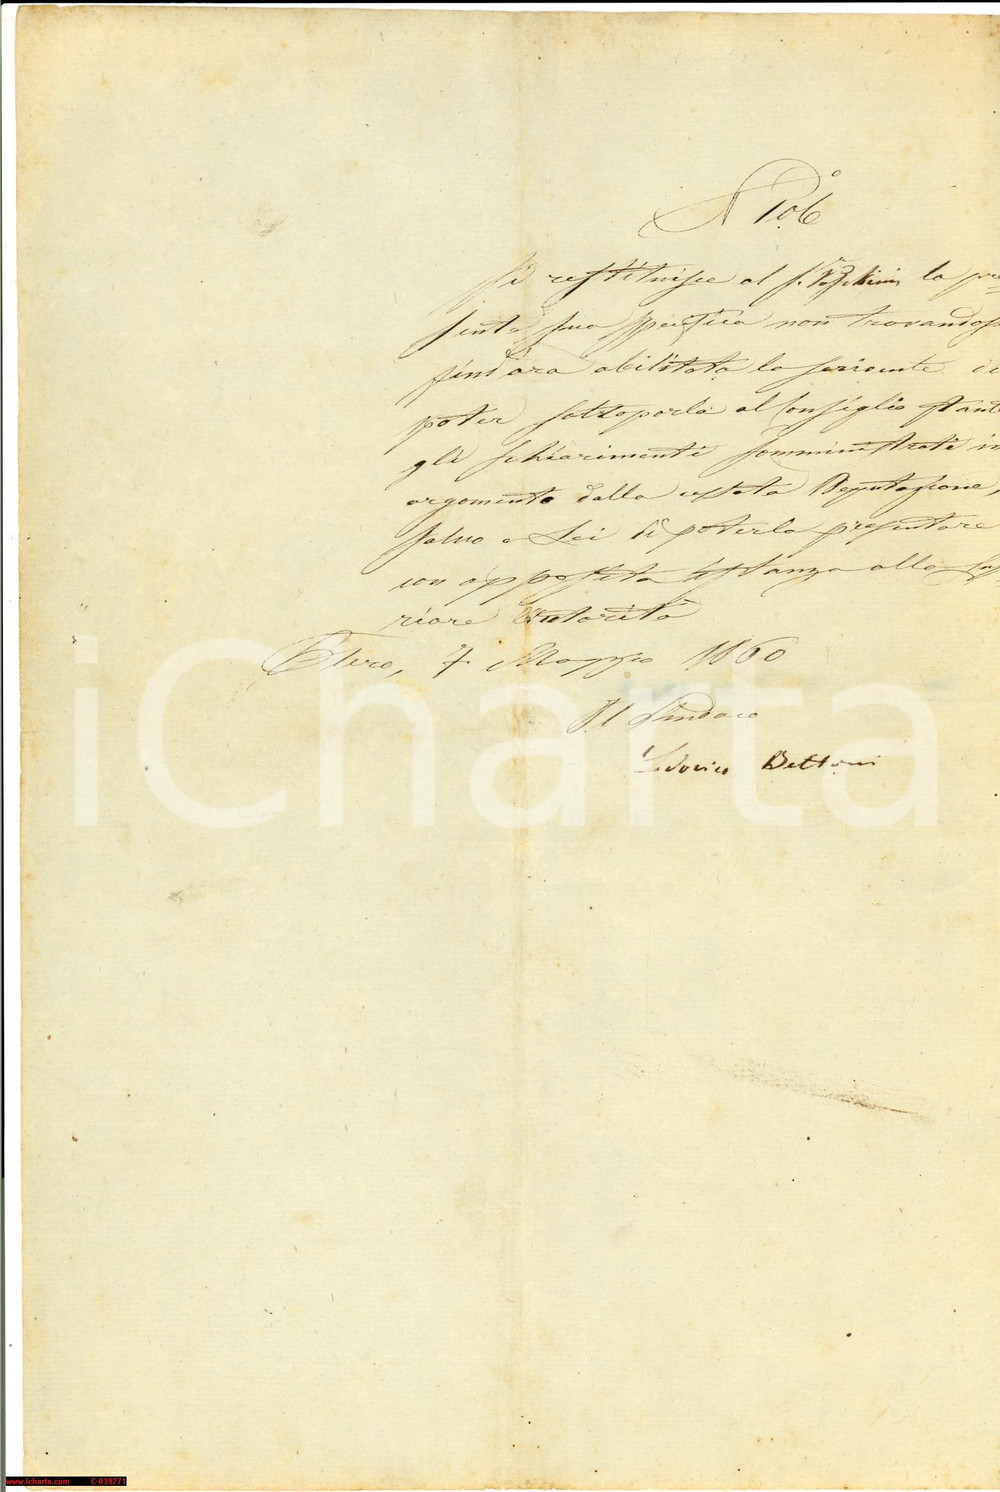 N°
Si restituisce al S.r la pre=
sente sua specifica non trovandosi
sindara abilitata la scrivente
poter sottoporla al Consiglio stante
gli schiarimenti somministrati in
argomento dalla cessata Deputazione,
salvo a Lei di poterla presentare
con apposita istanza alla Sup
riore Autorità
Flero, 7 Maggio 1860
Il Sindaco
Lodovico Bettoni
iCharta
www.icharta.com C-039271